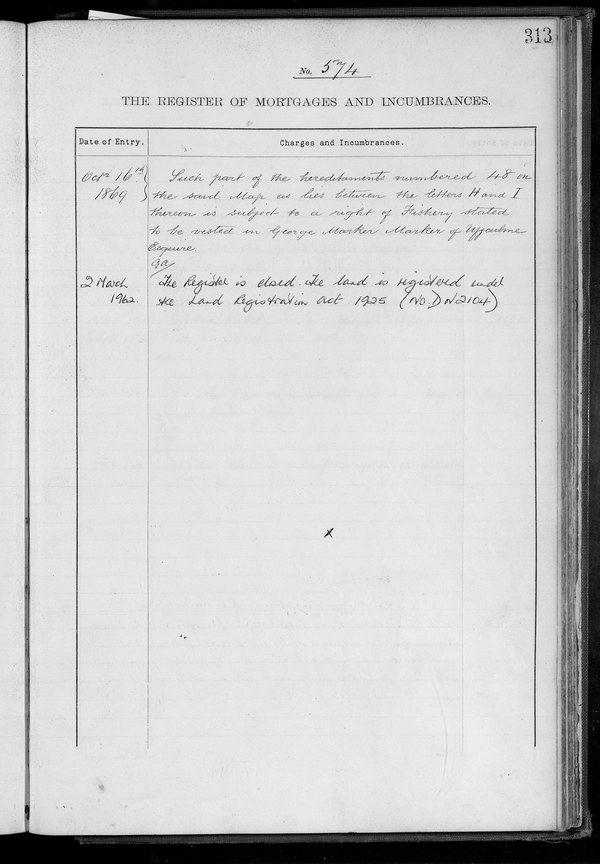 313
No. 574
THE REGISTER OF MORTGAGES AND INCUMBRANCES.
Date of Entry.
Charges and Incumbrances.
Octr 16th
1869
Such part of the hereditaments numbered 48 on
the said Map as lies between the letters H and I
thereon is subject to a right of Fishery stated
to be vested in George Marker Marker of Uffculme
Esquire.
2 March
1962
The Register is closed. The land is registered under
the Land Registration Act 1925 (No. DN2104)
x